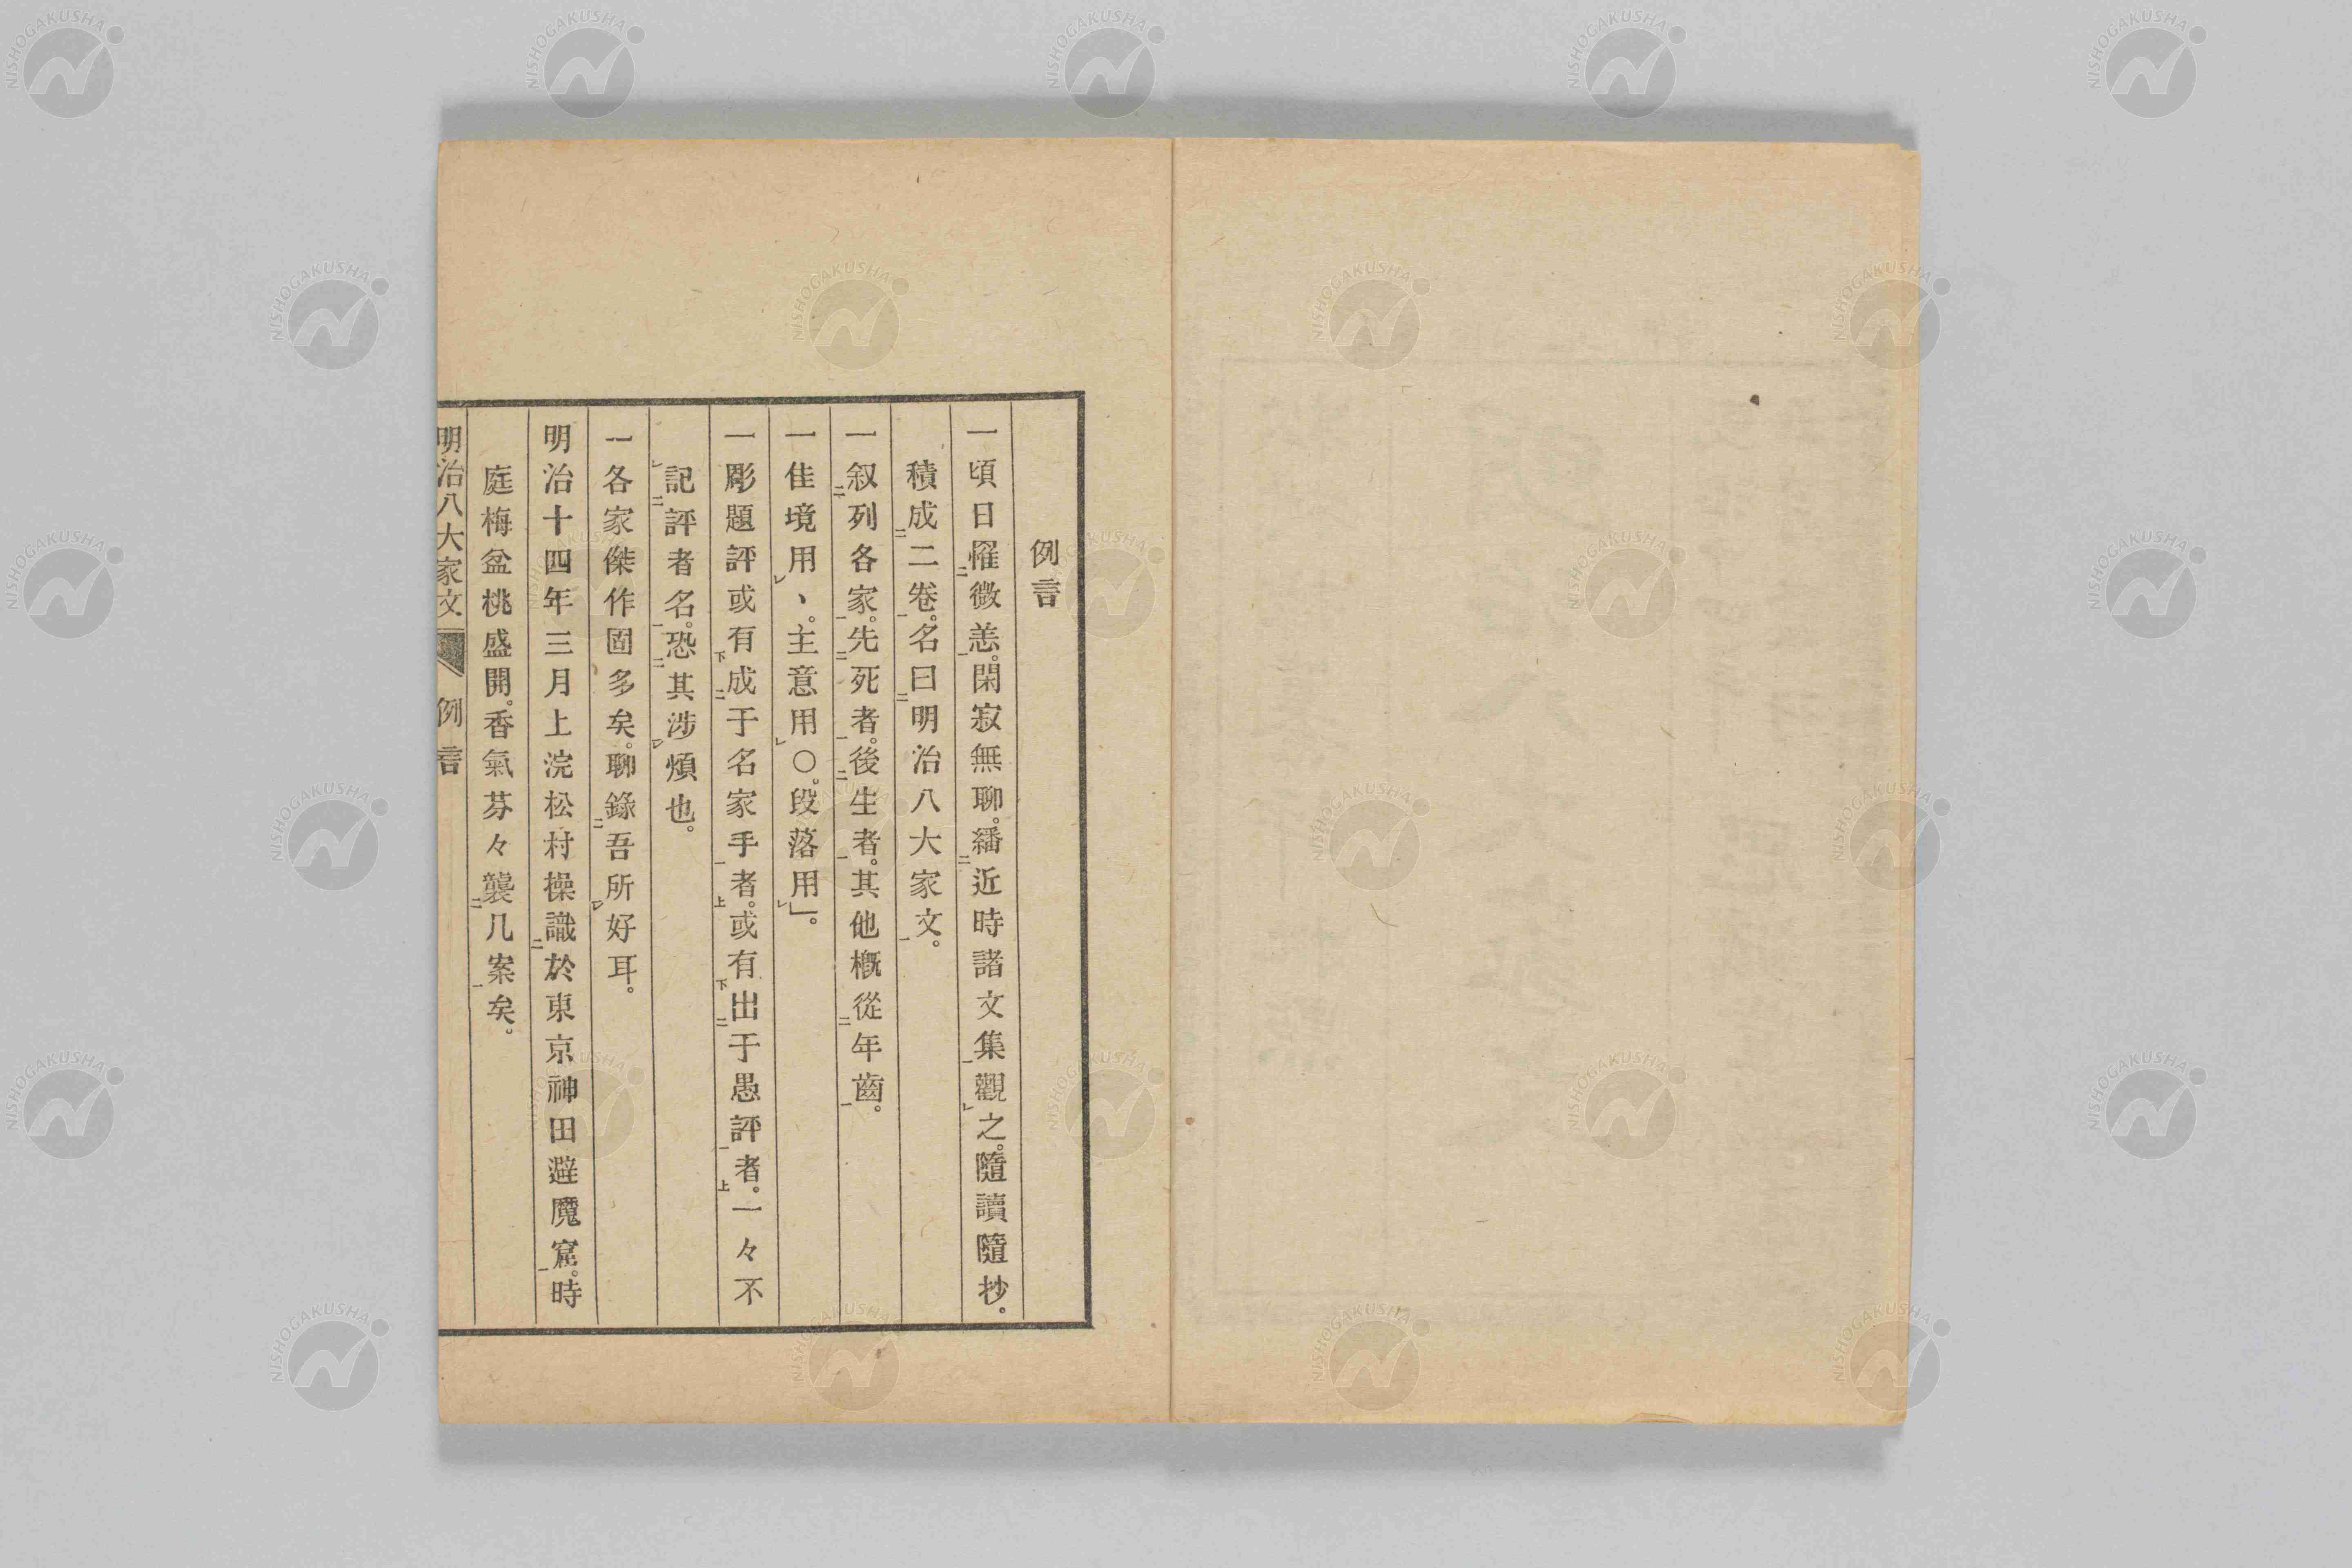 例言
一頃日罹微恙。閑寂無聊。繙近時諸文集觀之。隨讀隨抄。
積成二卷。名曰明治八大家文。
一叙列各家。先死者。後生者。其他概從年齒。
一佳境用、。主意用〇。段落用」。
一彫題評或有成于名家手者。或有出于愚評者。一々不
記評者名。恐其涉煩也。
一各家傑作固多矣。聊錄吾所好耳。
明治十四年三月上浣松村操識於東京神田避魔窟。時
庭梅盆桃盛開。香氣芬々襲几案矣。
明治八大家文 例言
NISHOGAKUSHA